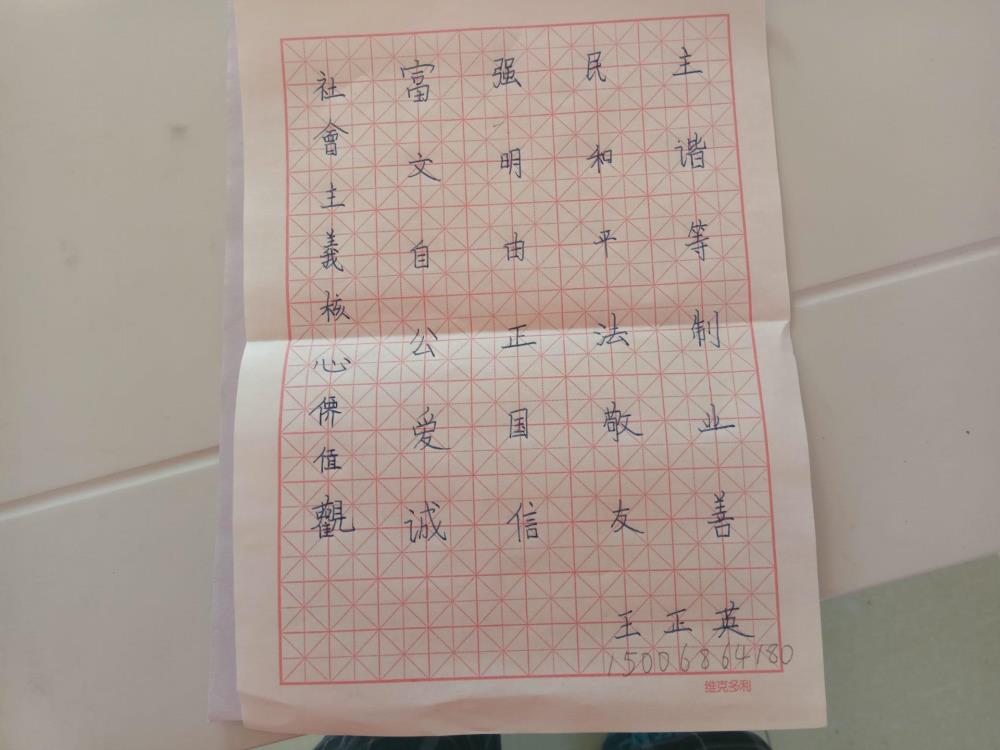 社會主義核心價值觀
富强民主
文明和谐
自由平等
公正法制
爱国敬业
诚信友善
王正英
15006864180
维克多利